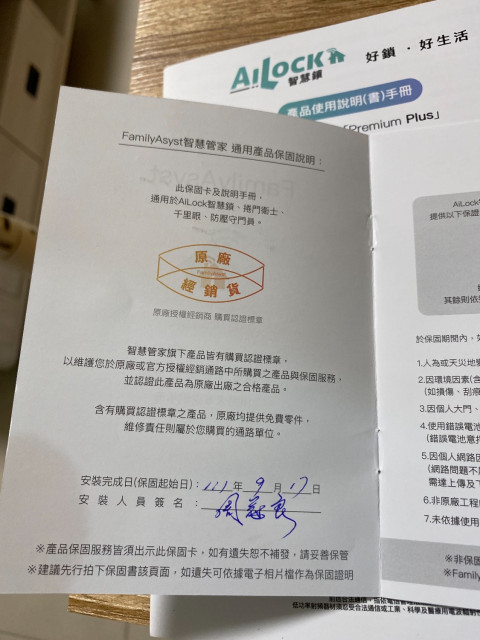 AiLock
智慧鎖
好鎖．好生活
產品使用說明(書)手冊
「Premium Plus」
FamilyAsyst智慧管家 通用產品保固說明：
此保固卡及說明手冊，
通用於AiLock智慧鎖、捲門衛士、
千里眼、防壓守門員。
原廠
經銷貨
原廠授權經銷商 購買認證標章
智慧管家旗下產品皆有購買認證標章，
以維護您於原廠或官方授權經銷通路中所購買之產品與保固服務，
並認證此產品為原廠出廠之合格產品。
含有購買認證標章之產品，原廠均提供免費零件，
維修責任則屬於您購買的通路單位。
安裝完成日(保固起始日)：111年 9 月 17日
安裝人員簽名：
※產品保固服務皆須出示此保固卡，如有遺失恕不補發，請妥善保管
※建議先行拍下保固書該頁面，如遺失可依據電子相片檔作為保固證明
AiLock
提供以下保證
其餘則依
於保固期間內，
1.人為或天災地
2.因環境因素(含
(如損傷、刮痕
3.因個人大門、
4.使用錯誤電池
(錯誤電池意指
5.因個人網路因
(網路問題不
需達上傳及下
6.非原廠工程
7.未依據使用
※非保固
※Family